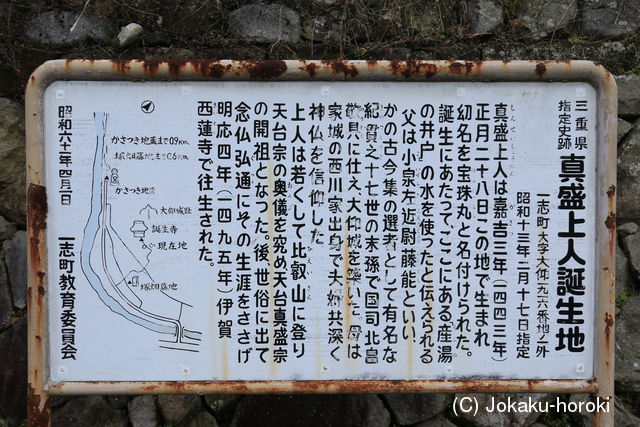 三重県
指定史跡
真盛上人誕生地
一志町大字大仰一九六番地ノ外
昭和十三年二月十七日指定
真盛上人は嘉吉三年(一四四三年)
正月二十八日この地で生まれ
幼名を宝珠丸と名付けられた。
誕生にあたって、ここにある産湯
の井戸の水を使ったと伝えられる
父は小泉左近尉藤能といい、
かの古今集の選者として有名な
紀貫之十七世の末孫で国司北畠
教具に仕え、大仰城を築いた。母は
家城の西川家出身で夫婦共深く
神仏を信仰した。
上人は若くして比叡山に登り
天台宗の奥儀を究め天台真盛宗
の開祖となった。後、世俗に出て
念仏弘通にその生涯をささげ
明応四年(一四九五年)伊賀
西蓮寺で往生された。
かさつき地蔵まで0.9km
塚畑墓地まで0.6km
かさつき地蔵
大仰城址
誕生寺
現在地
塚畑墓地
昭和六十二年四月
一志町教育委員会
(C) Jokaku-horo